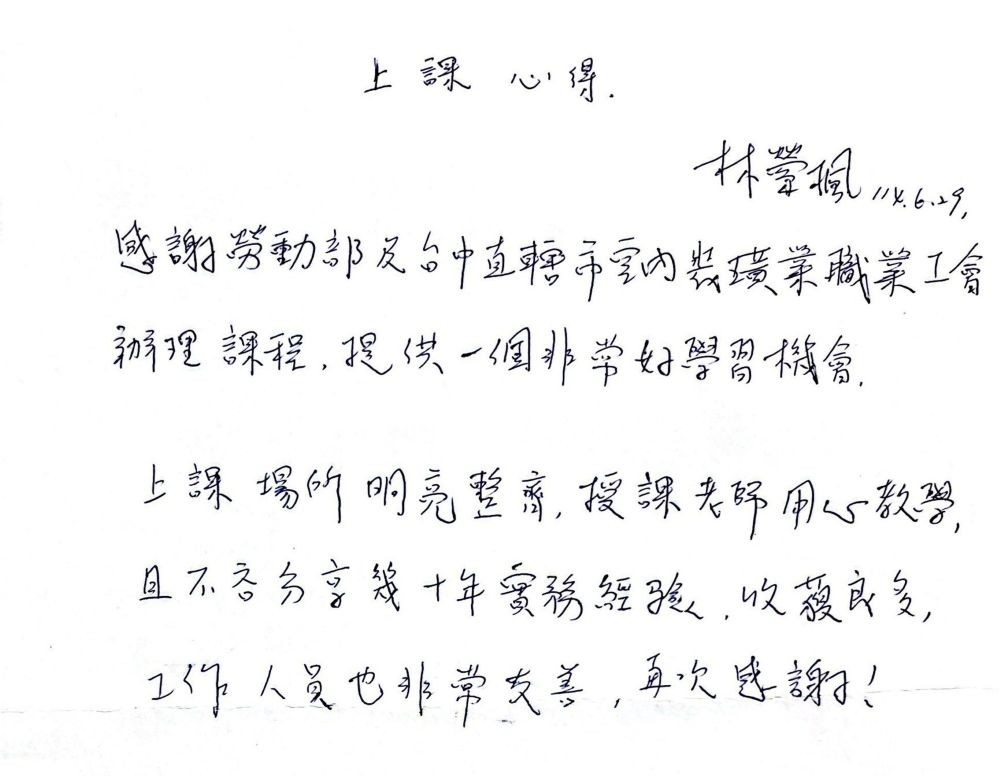 上課心得.
林螢楓 114.6.29,
感謝勞動部及台中直轄市室內裝璜業職業工會
辦理課程,提供一個非常好學習機會.
上課場所明亮整齊,授課老師用心教學,
且不吝分享幾十年實務經驗,收穫良多,
工作人員也非常友善,再次感謝!